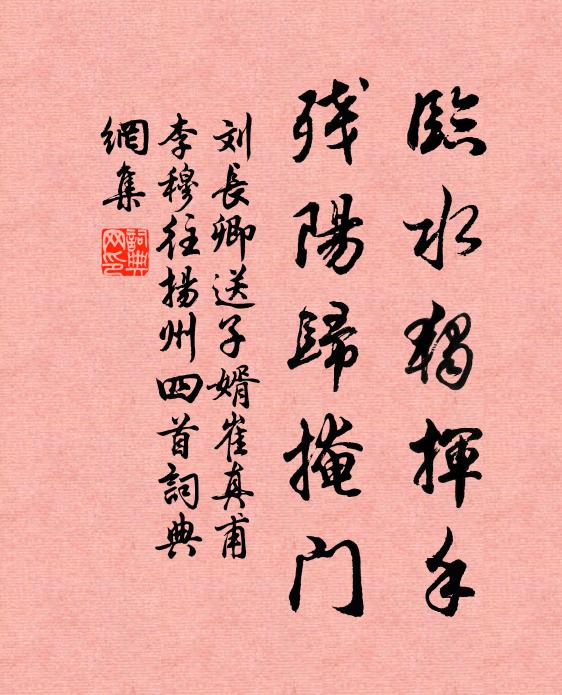 臨水獨揮手
殘陽歸掩門
刘長卿送子婿崔真甫
李穆往揚州四首詞典
網集
詞典
网印